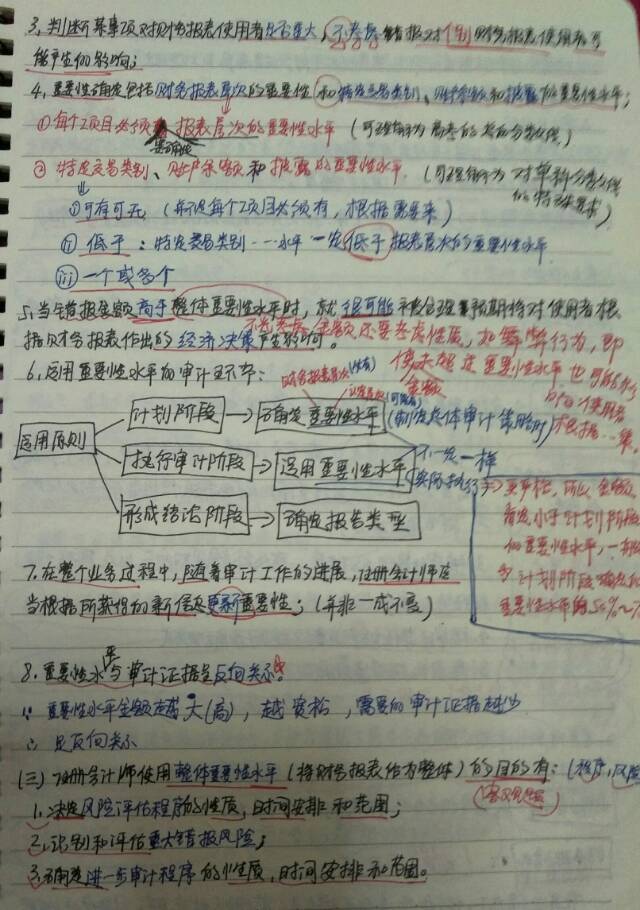 3、判断某事项对财务报表使用者是否重大，不考虑错报对个别财务报表使用者可
能产生的影响；
4、重要性确定包括财务报表层次的重要性和特定交易类别、账户余额和披露的重要性水平；
①每个项目必须要确定报表层次的重要性水平（可理解为
②特定交易类别、账户余额和披露的重要性水平（可理解为对单科分数线
的特殊要求）
ⅰ可有可无（并非每个项目必须有，根据需要来）
ⅱ低于：特定交易类别……水平一定低于报表层次的重要性水平
ⅲ一个或多个
5、当错报金额高于整体重要性水平时，就很可能被合理预期将对使用者根
据财务报表作出的经济决策产生影响。
不光考虑金额还要考虑性质，如舞弊行为，即
使未超过重要性水平也可能影
响使用者
根据……策。
6、运用重要性水平的审计环节：
财务报表层次（必有）
认定层次（可能有）
金额
运用原则
计划阶段
确定重要性水平（制定总体审计策略时）
执行审计阶段
运用重要性水平
不一定一样
实际执行
更严格，所以金额
肯定小于计划阶段
的重要性水平，一般
为计划阶段确定的
重要性水平的50%~7
形成结论阶段
确定报告类型
7、在整个业务过程中，随着审计工作的进展，注册会计师应
当根据所获得的新信息更新重要性；（并非一成不变）
8、重要性水平与审计证据呈反向关系。
∵重要性水平金额越大（高），越宽松，需要的审计证据越少
∴是反向关系
（三）注册会计师使用整体重要性水平（将财务报表作为整体）的目的有：（程序，风险
1、决定风险评估程序的性质，时间安排和范围；
2、识别和评估重大错报风险；
3、确定进一步审计程序的性质，时间安排和范围。